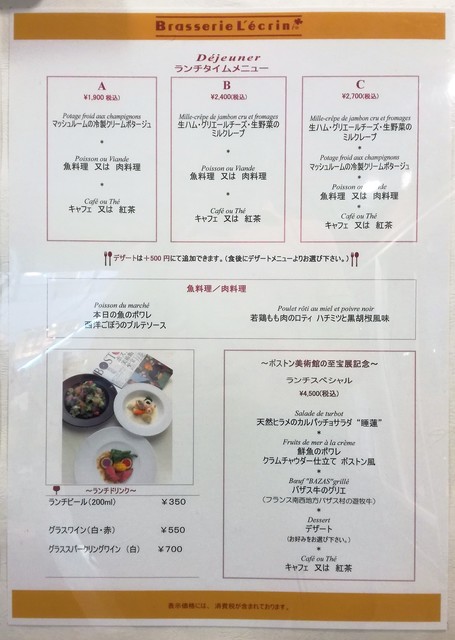 Brasserie L'écrin
Déjeuner
ランチタイムメニュー
A
¥1,900 税込)
Potage froid aux champignons
マッシュルームの冷製クリームポタージュ
*
Poisson ou Viande
魚料理 又は 肉料理
*
Café ou Thé
キャフェ 又は 紅茶
B
¥2,400(税込)
Mille-crêpe de jambon cru et fromages
生ハム・グリエールチーズ・生野菜の
ミルクレープ
*
Poisson ou Viande
魚料理 又は 肉料理
*
Café ou Thé
キャフェ 又は 紅茶
C
¥2,700(税込)
Mille-crêpe de jambon cru et fromages
生ハム・グリエールチーズ・生野菜の
ミルクレープ
*
Potage froid aux champignons
マッシュルームの冷製クリームポタージュ
*
Poisson ou
魚料理 又は 肉料理
*
Café ou Thé
キャフェ 又は 紅茶
デザートは+500円にて追加できます。(食後にデザートメニューよりお選び下さい。)
魚料理/肉料理
Poisson du marché
本日の魚のポワレ
西洋ごぼうのブルテソース
Poulet rôti au miel et poivre noir
若鶏もも肉のロティ ハチミツと黒胡椒風味
~ランチドリンク~
ランチビール(200ml) ¥350
グラスワイン(白・赤) ¥550
グラススパークリングワイン (白) ¥700
~ボストン美術館の至宝展記念~
ランチスペシャル
¥4,500(税込)
Salade de turbot
天然ヒラメのカルパッチョサラダ “睡蓮”
*
Fruits de mer à la crème
鮮魚のポワレ
クラムチャウダー仕立て ボストン風
*
Bœuf "BAZAS"grillé
バザス牛のグリエ
(フランス南西地方バザス村の遊牧牛)
*
Dessert
デザート
(お好みをお選び下さい。)
*
Café ou Thé
キャフェ 又は 紅茶
表示価格には、消費税が含まれております。